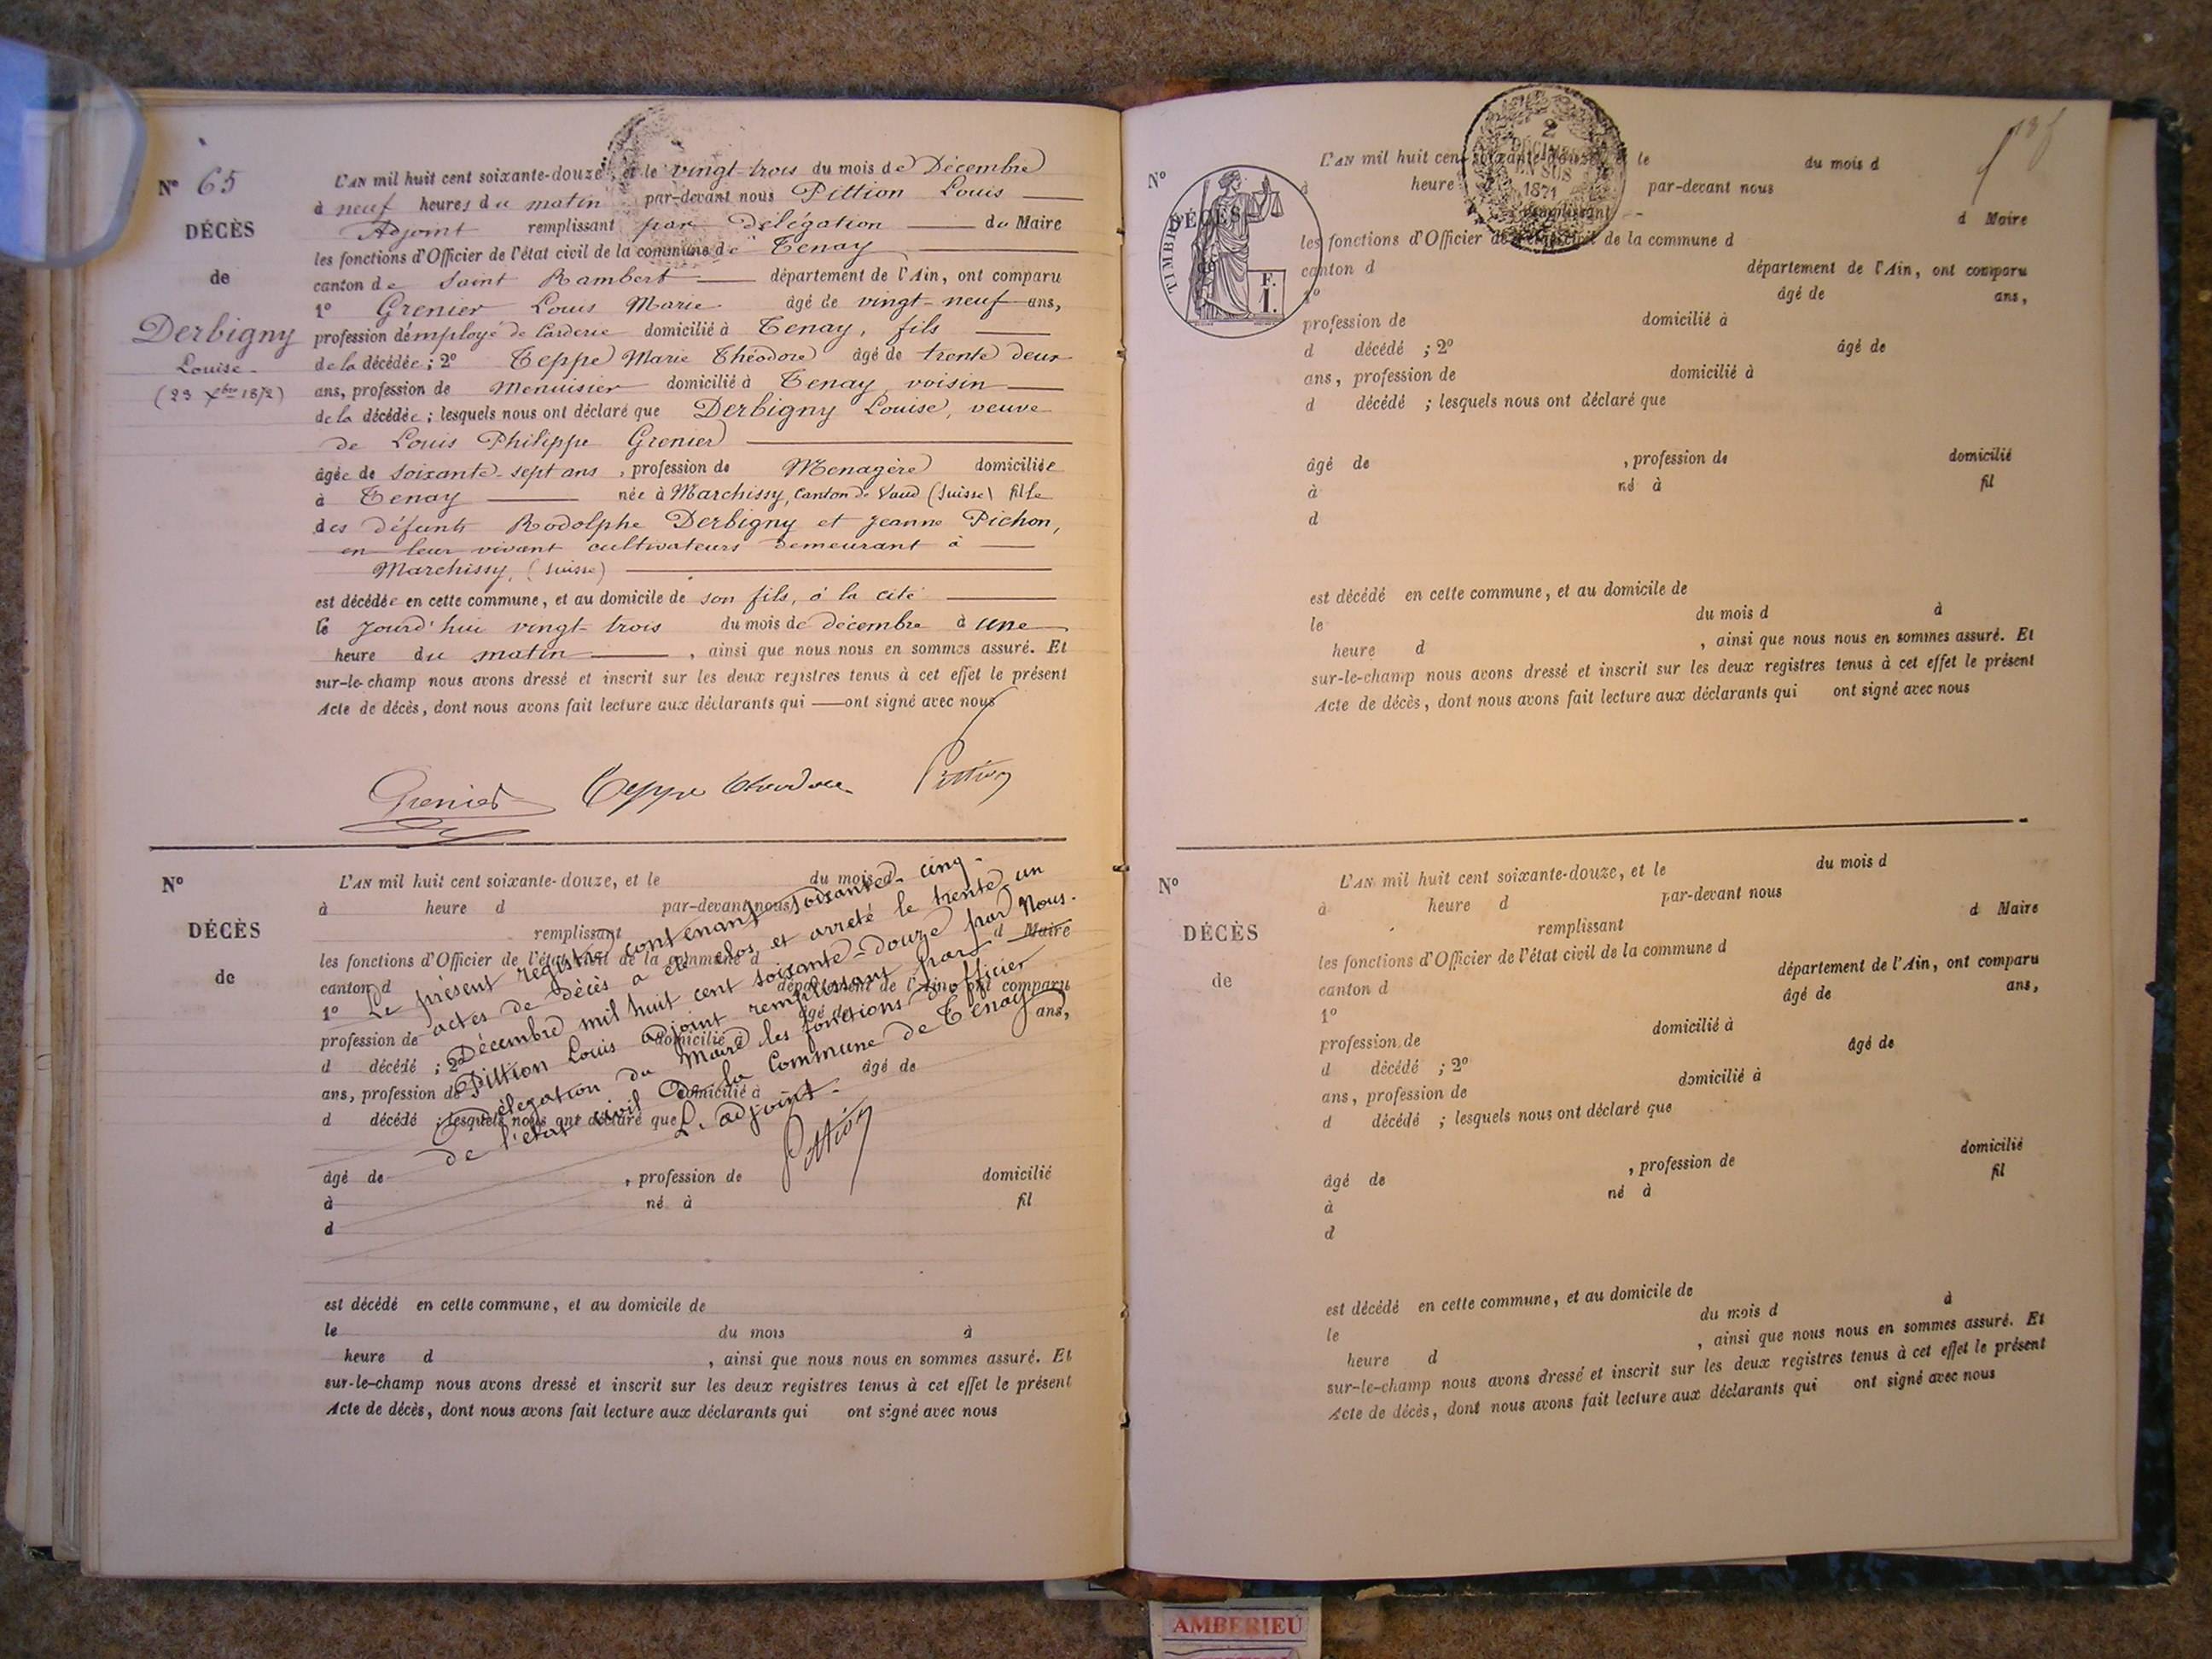 Nº 65
DÉCÈS
de
Derbigny
Louise
(23 Xbre 1872)
L'AN mil huit cent soixante-douze, et le vingt-trois du mois de Décembre
à neuf heures du matin par-devant nous Pittion Louis
Adjoint remplissant par délégation du Maire
les fonctions d'Officier de l'état civil de la commune de Tenay
canton de Saint Rambert département de l'Ain, ont comparu
1º Grenier Louis Marie âgé de vingt-neuf ans,
profession d'employé de Carderie domicilié à Tenay, fils
de la décédée ; 2º Teppe Marie Théodore âgé de trente deux
ans, profession de Menuisier domicilié à Tenay, voisin
de la décédée ; lesquels nous ont déclaré que Derbigny Louise, veuve
de Louis Philippe Grenier
âgée de soixante-sept ans, profession de Menagère domiciliée
à Tenay née à Marchissy, Canton de Vaud (Suisse) fille
des défunts Rodolphe Derbigny et Jeanne Pichon,
en leur vivant cultivateurs demeurant à
Marchissy, (Suisse)
est décédée en cette commune, et au domicile de son fils, à la cité
le jourd'hui vingt-trois du mois de décembre à une
heure du matin, ainsi que nous nous en sommes assuré. Et
sur-le-champ nous avons dressé et inscrit sur les deux registres tenus à cet effet le présent
Acte de décès, dont nous avons fait lecture aux déclarants qui ont signé avec nous
Grenier Teppe Théodore Pittion
Nº
DÉCÈS
de
L'AN mil huit cent soixante-douze, et le du mois d
à heure d par-devant nous
remplissant d Maire
les fonctions d'Officier de l'état civil de la commune d
canton d département de l'Ain, ont comparu
1º âgé de ans,
profession de domicilié à
d décédé ; 2º âgé de
ans, profession de domicilié à
d décédé ; lesquels nous ont déclaré que
Le présent registre contenant soixante-cinq
actes de décès a été clos et arrêté le trente un
Décembre mil huit cent soixante-douze par Nous
Pittion Louis adjoint remplissant par
délégation du Maire les fonctions d'officier
de l'état civil de la Commune de Tenay
L'adjoint.
Pittion
âgé de , profession de domicilié
à né à fil
d
est décédé en cette commune, et au domicile de
le du mois à
heure d , ainsi que nous nous en sommes assuré. Et
sur-le-champ nous avons dressé et inscrit sur les deux registres tenus à cet effet le présent
Acte de décès, dont nous avons fait lecture aux déclarants qui ont signé avec nous
Nº
DÉCÈS
de
TIMBRE
F.
1.
2
DÉCIMES
EN SUS
1871
L'AN mil huit cent soixante-douze, et le du mois d
à heure par-devant nous
remplissant d Maire
les fonctions d'Officier de l'état civil de la commune d
canton d département de l'Ain, ont comparu
1º âgé de ans,
profession de domicilié à
d décédé ; 2º âgé de
ans, profession de domicilié à
d décédé ; lesquels nous ont déclaré que
âgé de , profession de domicilié
à né à fil
d
est décédé en cette commune, et au domicile de
le du mois d à
heure d , ainsi que nous nous en sommes assuré. Et
sur-le-champ nous avons dressé et inscrit sur les deux registres tenus à cet effet le présent
Acte de décès, dont nous avons fait lecture aux déclarants qui ont signé avec nous
Nº
DÉCÈS
de
L'AN mil huit cent soixante-douze, et le du mois d
à heure d par-devant nous
remplissant d Maire
les fonctions d'Officier de l'état civil de la commune d
canton d département de l'Ain, ont comparu
1º âgé de ans,
profession de domicilié à
d décédé ; 2º âgé de
ans, profession de domicilié à
d décédé ; lesquels nous ont déclaré que
âgé de , profession de domicilié
à né à fil
d
est décédé en cette commune, et au domicile de
le du mois d à
heure d , ainsi que nous nous en sommes assuré. Et
sur-le-champ nous avons dressé et inscrit sur les deux registres tenus à cet effet le présent
Acte de décès, dont nous avons fait lecture aux déclarants qui ont signé avec nous
AMBERIEU